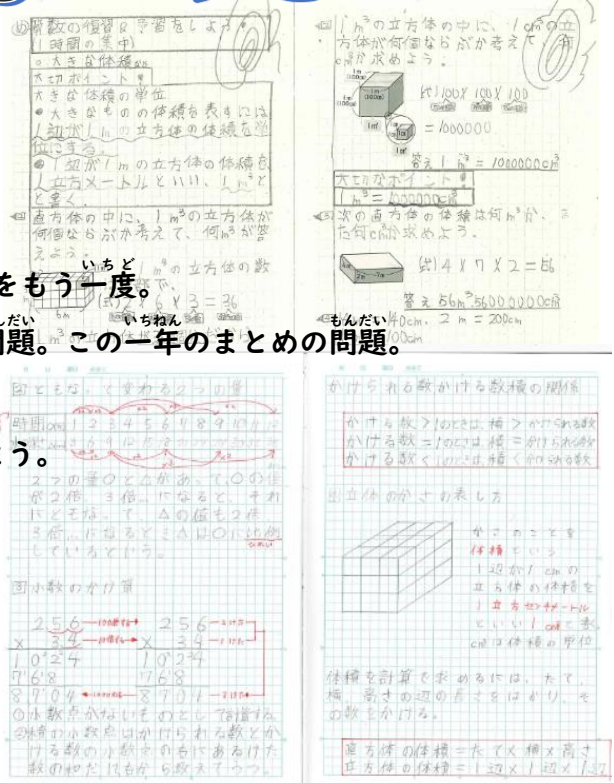 の復習&予習をしよう
1時間の集中
大きな体積
大切ポイント!
大きな体積の単位
●大きなものの体積を表すには
1辺が1mの立方体の体積を単
位にする。
●1辺が1mの立方体の体積を
1立方メートルといい、1m³と
書く。
直方体の中に、1m³の立方体が
何個ならぶか考えて、何m³か答
えよう。
1m³の立方体の数
6×3=36
6m
1m³の立方体の中に、1cm³の立
方体が何個ならぶか考えて、何
cm³か求めよう。
1m
(100cm)
1m
(100cm)
1m
(100cm)
1m³
(式)100×100×100
=1000000
答え 1m³=1000000cm³
大切なポイント!
1m³=1000000cm³
次の直方体の体積は何m³か、ま
た何cm³か求めよう。
(式)4×7×2=56
答え 56m³ 56000000cm³
2m=200cm
いちど
をもう一度。
だい いちねん もんだい
題。この一年のまとめの問題。
う。
ともなって変わる2つの量
時間 1 2 3 4 5 6 7 8 9 10
2つの量○と△があって、○の値
が2倍、3倍…になると、それ
にともなって、△の値も2倍
3倍…になるとき△は○に比例
しているという。
小数のかけ算
2.56
×3.4
1024
768
8.704
256
×34
1024
768
8704
○小数点がないものとして計算する
積の小数点はかけられる数とか
ける数の小数点の右にあるけた
数の和だけ右から数えてうつ。
かけられる数かける数積の関係
かける数>1のときは、積>かけられる数
かける数=1のときは、積=かけられる数
かける数<1のときは、積<かけられる数
立体のかさの表し方
かさのことを
体積という
1辺が1cmの
立方体の体積を
1立方センチメートル
といい1cm³と表
cm³は体積の単位
体積を計算で求めるには、たて、
横、高さの辺の長さをはかり、そ
の数をかける。
直方体の体積=たて×横×高さ
立方体の体積=1辺×1辺×1辺